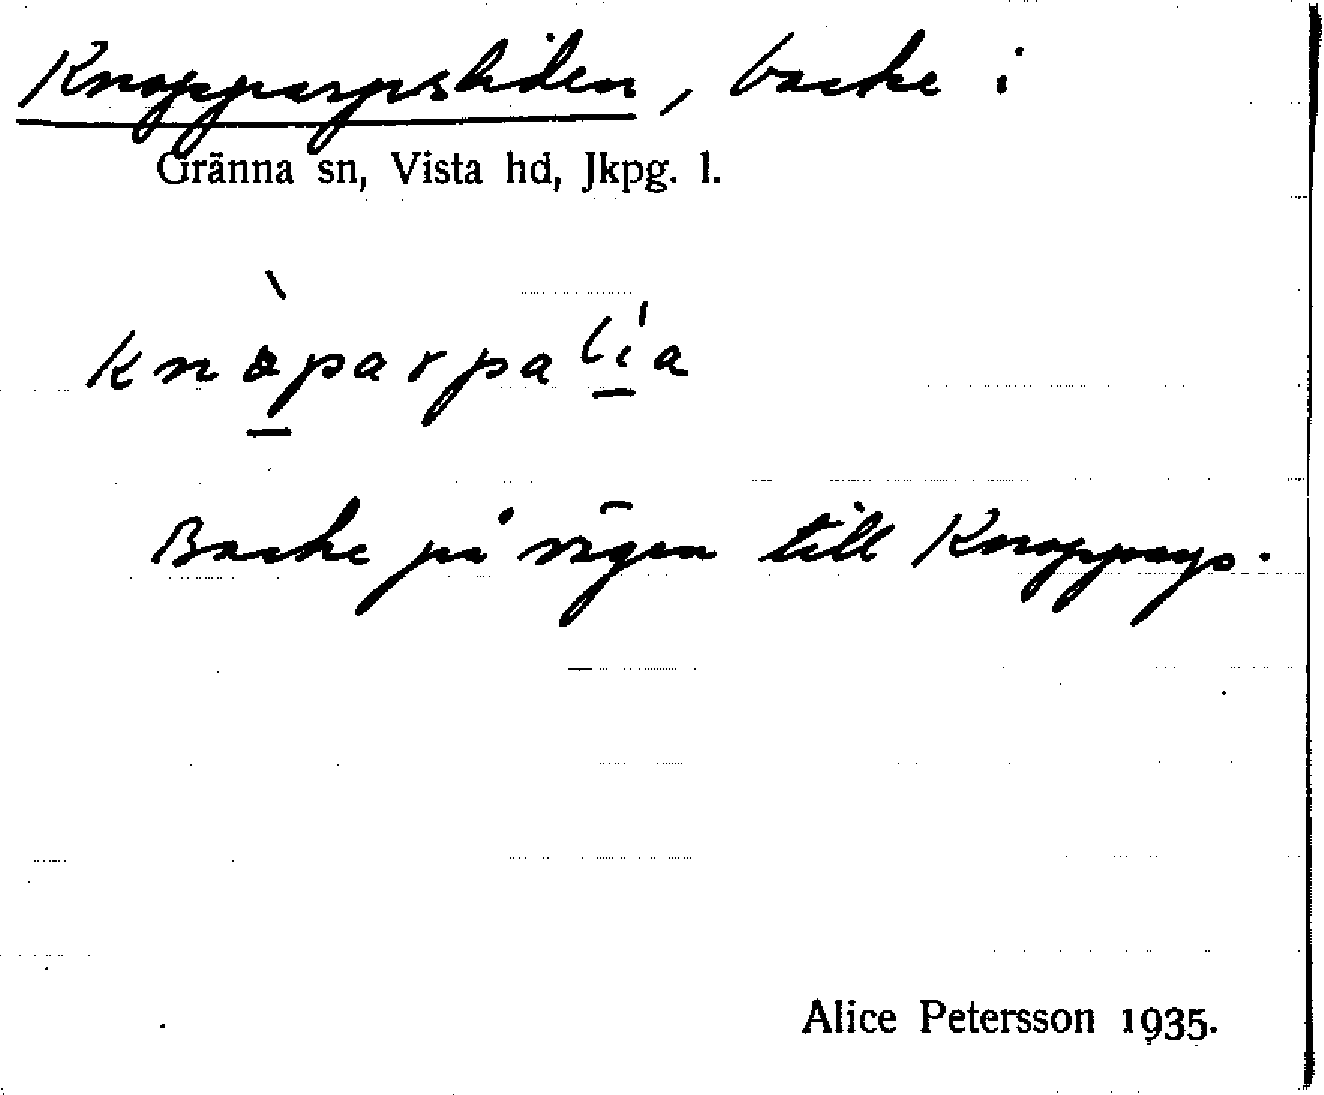 Knopparpsliden, backe i
Gränna sn, Vista hd, Jkpg. l.
knòparpalía
Backe på vägen till Knopparp.
Alice Petersson 1935.